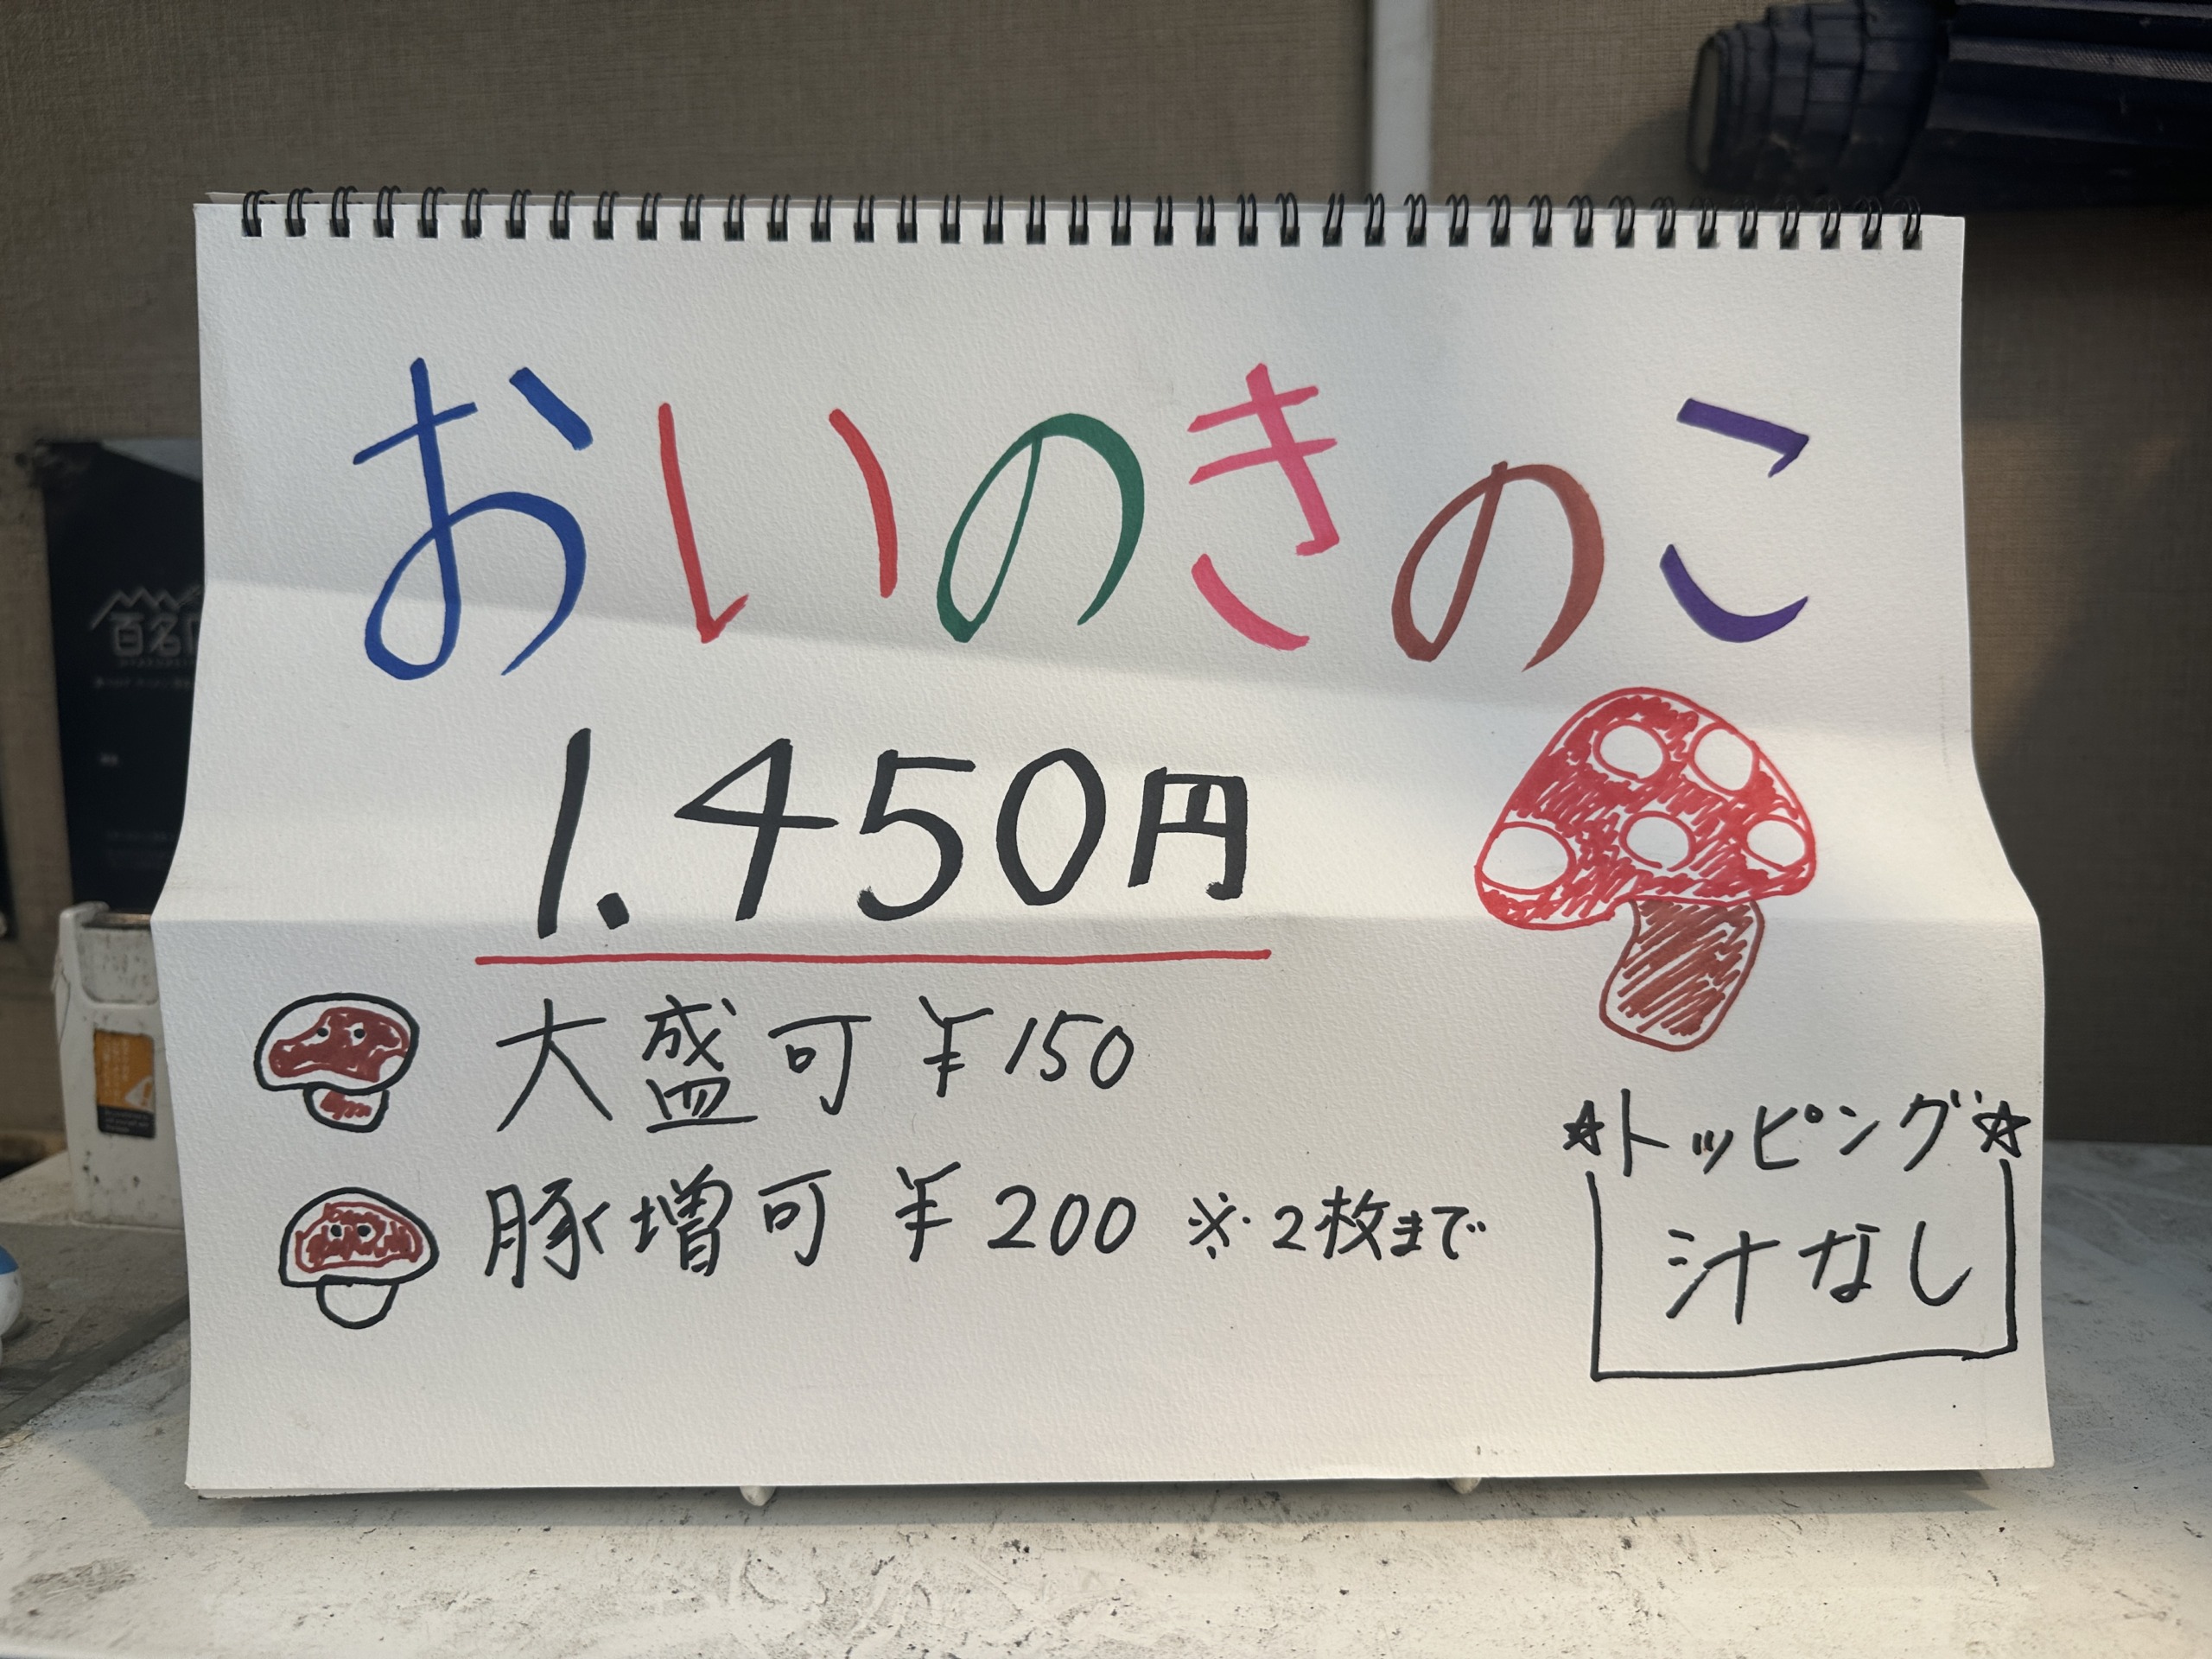 おいのきのこ
1.450円
大盛可 ¥150
豚増可 ¥200 ※2枚まで
☆トッピング☆
汁なし
百名